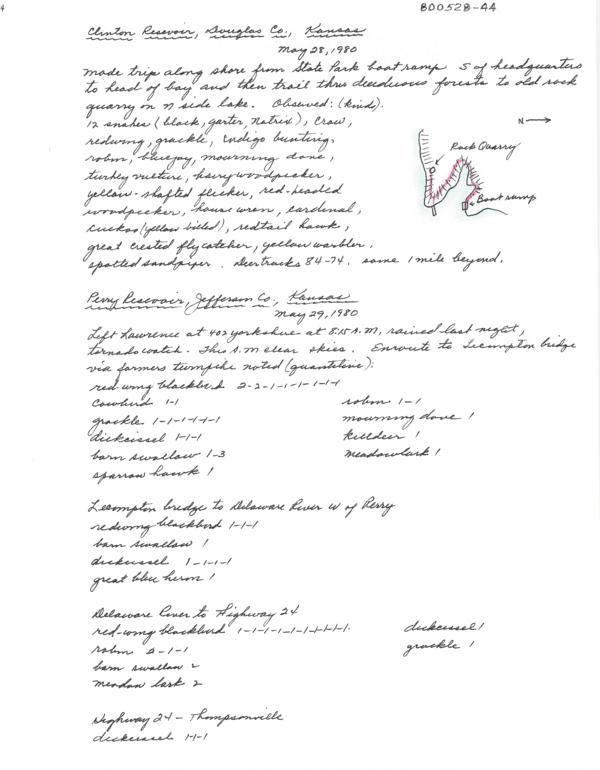 4
800528-44
Clinton Resevoir, Douglas Co., Kansas
May 28, 1980
made trip along shore from State Park boat ramp S of headquarters
to head of bay and then trail thru deciduous forests to old rock
quarry on N side lake. Observed: (kinds).
12 snakes (black, garter, natrix), crow,
redwing, grackle, indigo bunting,
robin, bluejay, mourning dove,
turkey vulture, hairy woodpecker,
yellow-shafted flicker, red-headed
woodpecker, house wren, cardinal,
cuckoo (yellow billed), redtail hawk,
great crested flycatcher, yellow warbler,
spotted sandpiper. Deertracks 84-74. some 1 mile beyond.
N →
Rock Quarry
Boat ramp
Perry Resevoir, Jefferson Co., Kansas
May 29, 1980
Left Lawrence at 402 yorkshire at 8:15 A.M, rained last night,
tornado watch. This A.M clear skies. Enroute to Lecompton bridge
via farmers turnpike noted (quantitive):
red-wing blackbird 2-2-1-1-1-1-1-1
Cowbird 1-1
grackle 1-1-1-1-1-1
dickcissel 1-1-1
barn swallow 1-3
sparrow hawk 1
robin 1-1
mourning dove 1
killdeer 1
meadowlark 1
Lecompton bridge to Delaware River W of Perry
redwing blackbird 1-1-1
barn swallow 1
dickcissel 1-1-1-1
great blue heron 1
Delaware River to Highway 24
red-wing blackbird 1-1-1-1-1-1-1-1-1-1.
robin 2-1-1
barn swallow 2
meadow lark 2
dickcissel 1
grackle 1
Highway 24 - Thompsonville
dickcissel 1-1-1